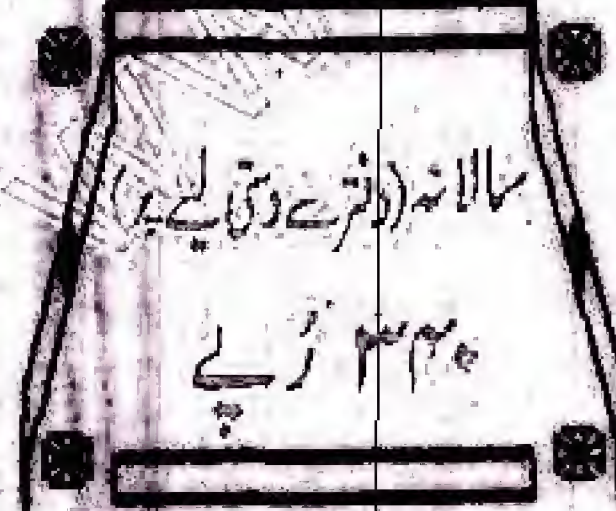 سالانہ (دفتر سے دستی لینے پر)
رُپے